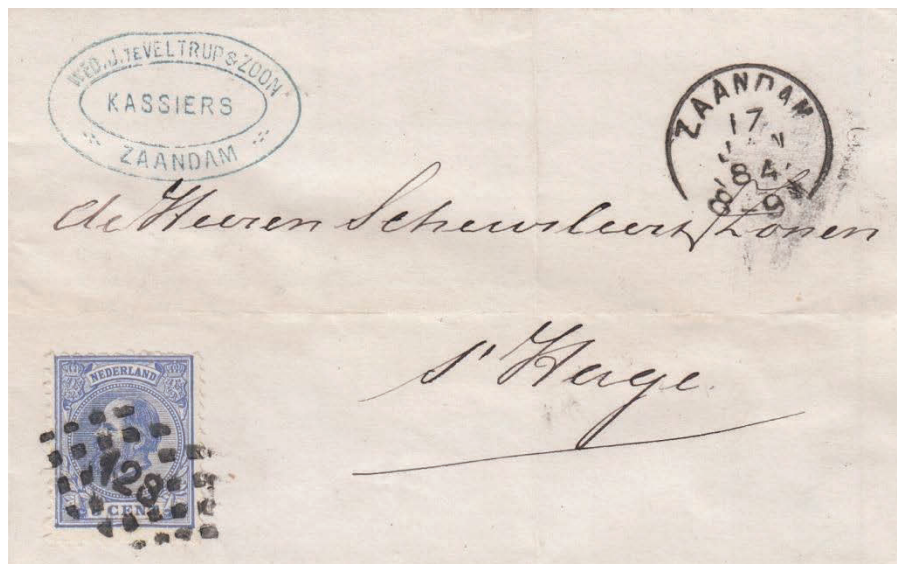 WED. J. TEVELTRUP & ZOON
KASSIERS
ZAANDAM
ZAANDAM
17
JAN
84
8-9
de Heeren Scheurleer & Zonen
s' Hage
NEDERLAND
128
CENT